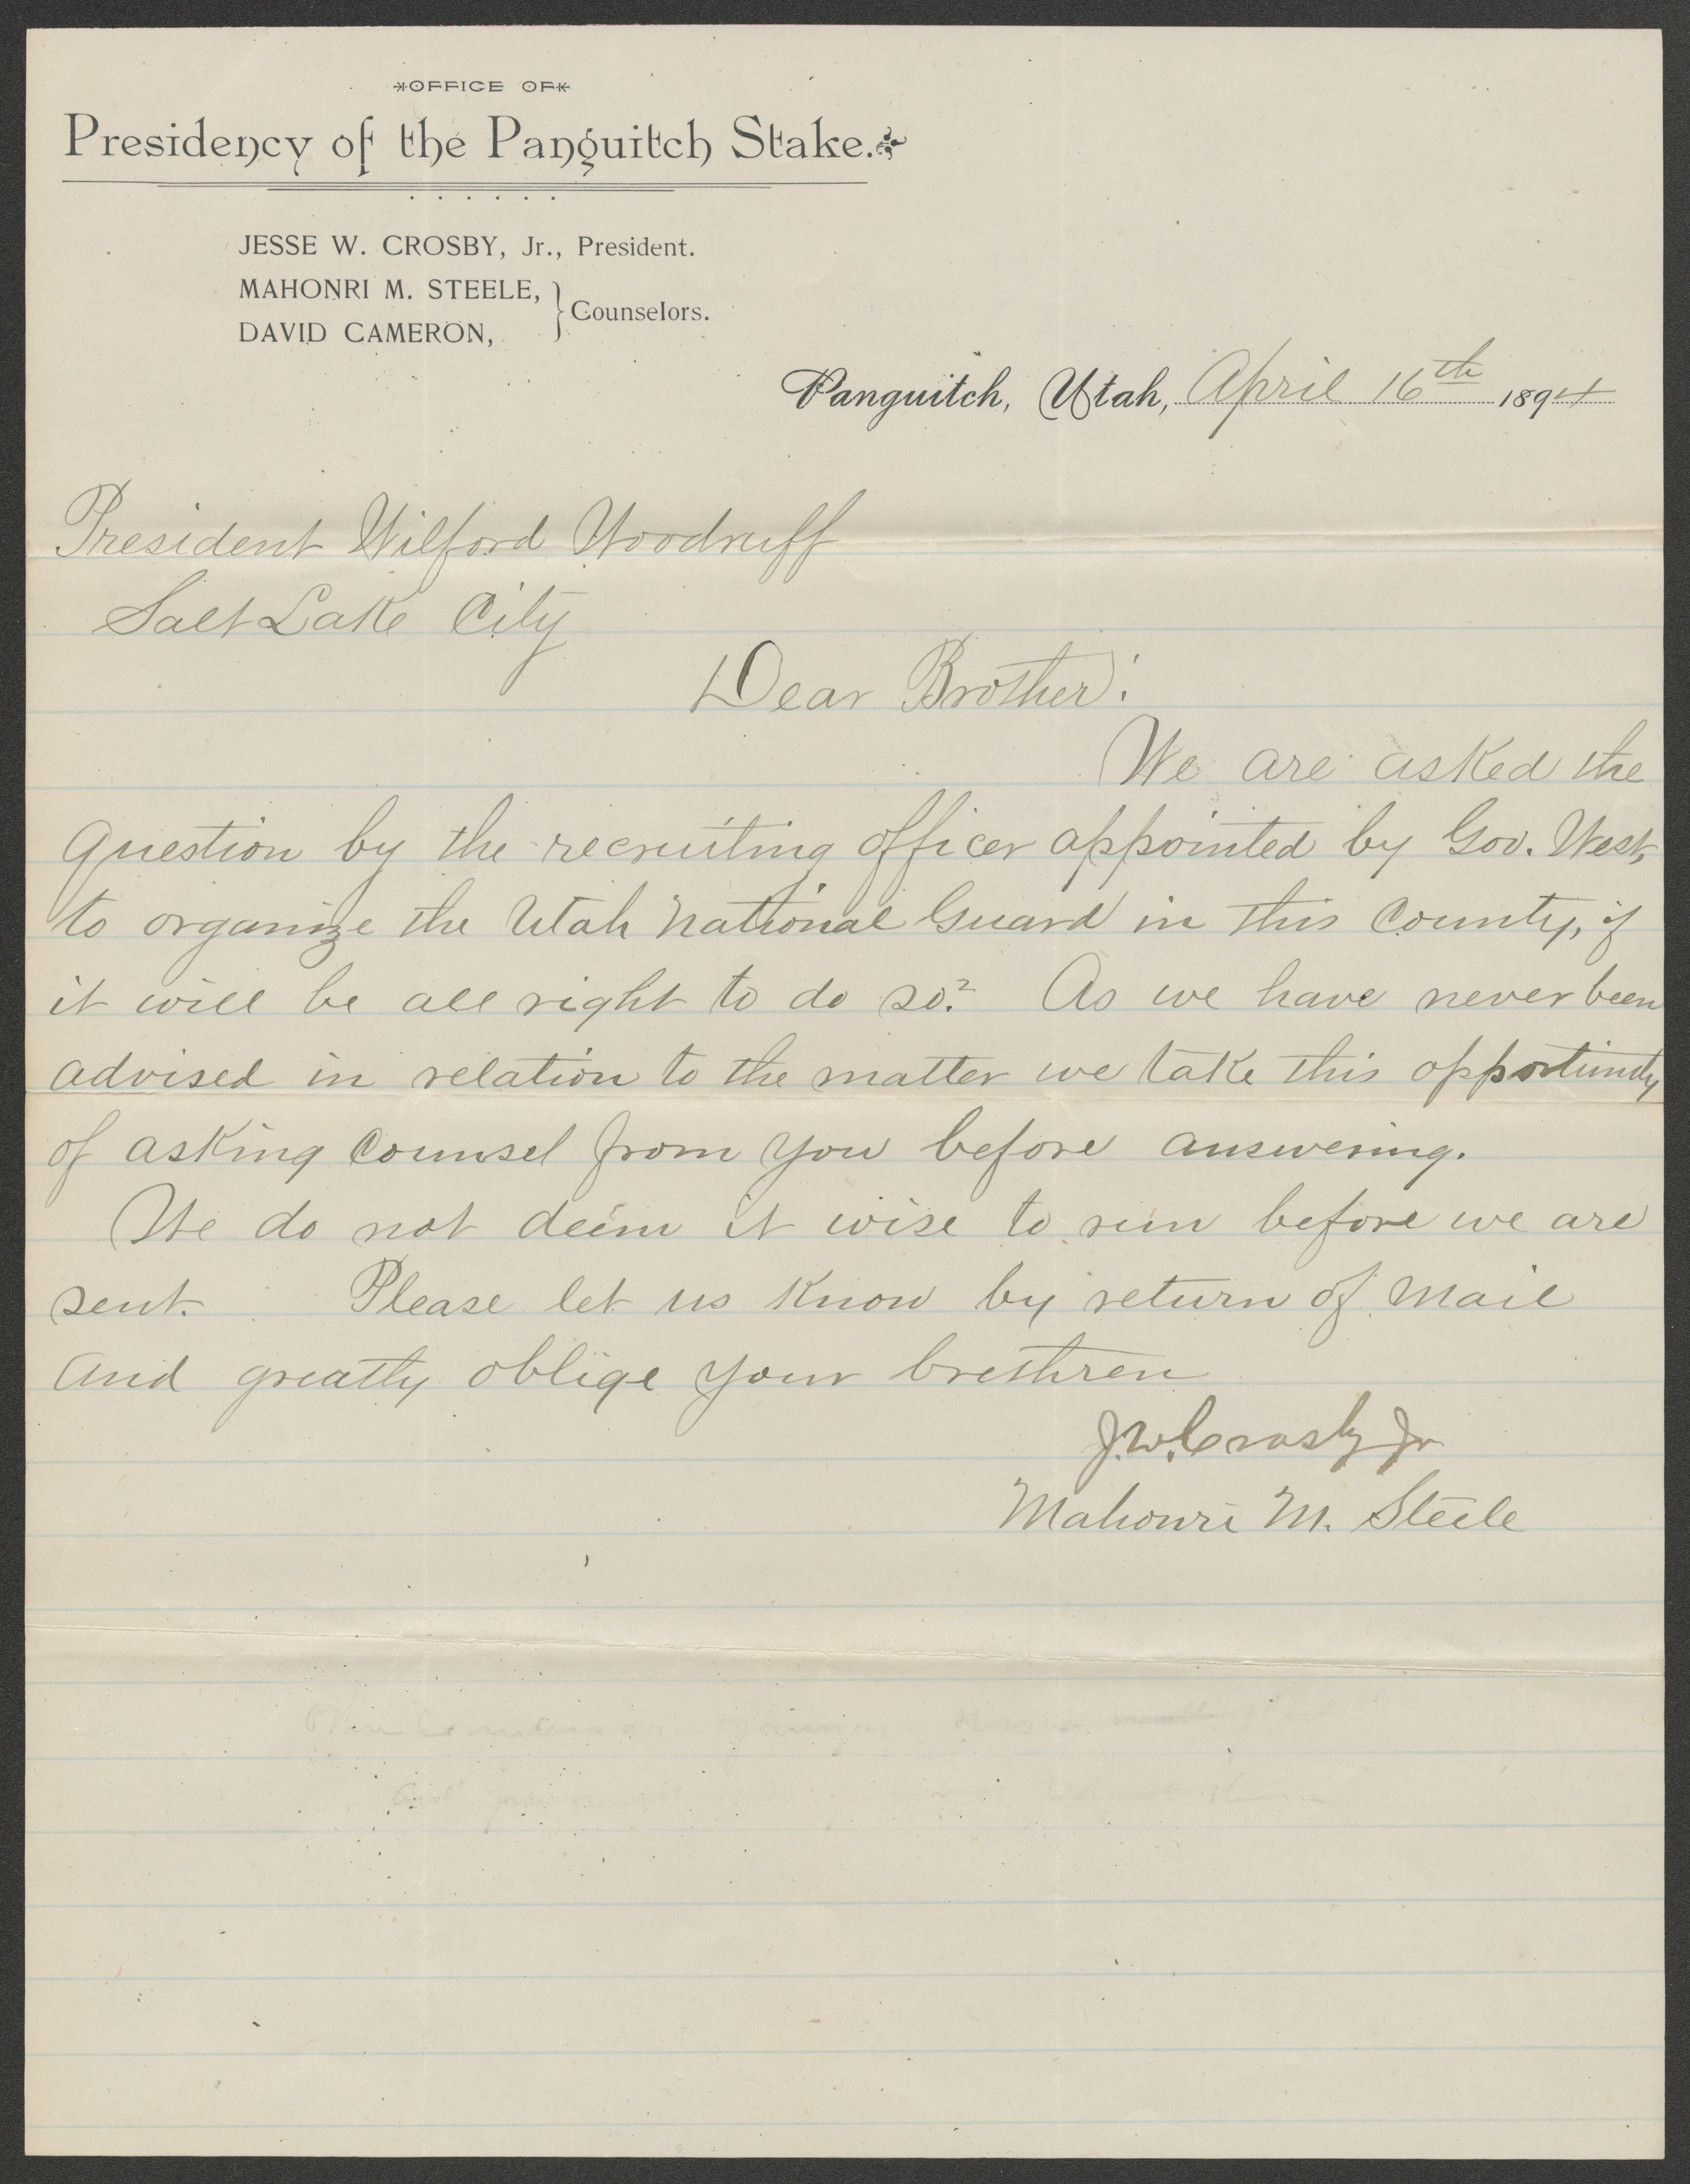 OFFICE OF
Presidency of the Panguitch Stake.
JESSE W. CROSBY, Jr., President.
MAHONRI M. STEELE,
DAVID CAMERON, } Counselors.
Panguitch, Utah, April 16th 1894
President Wilford Woodruff
Salt Lake City
Dear Brother:
We are asked the
question by the recruiting officer appointed by Gov. West,
to organize the Utah National Guard in this County, if
it will be all right to do so? As we have never been
advised in relation to the matter we take this opportunity
of asking counsel from you before answering.
We do not deem it wise to run before we are
sent. Please let us know by return of mail
and greatly oblige your brethren
J. W. Crosby Jr
Mahonri M. Steele